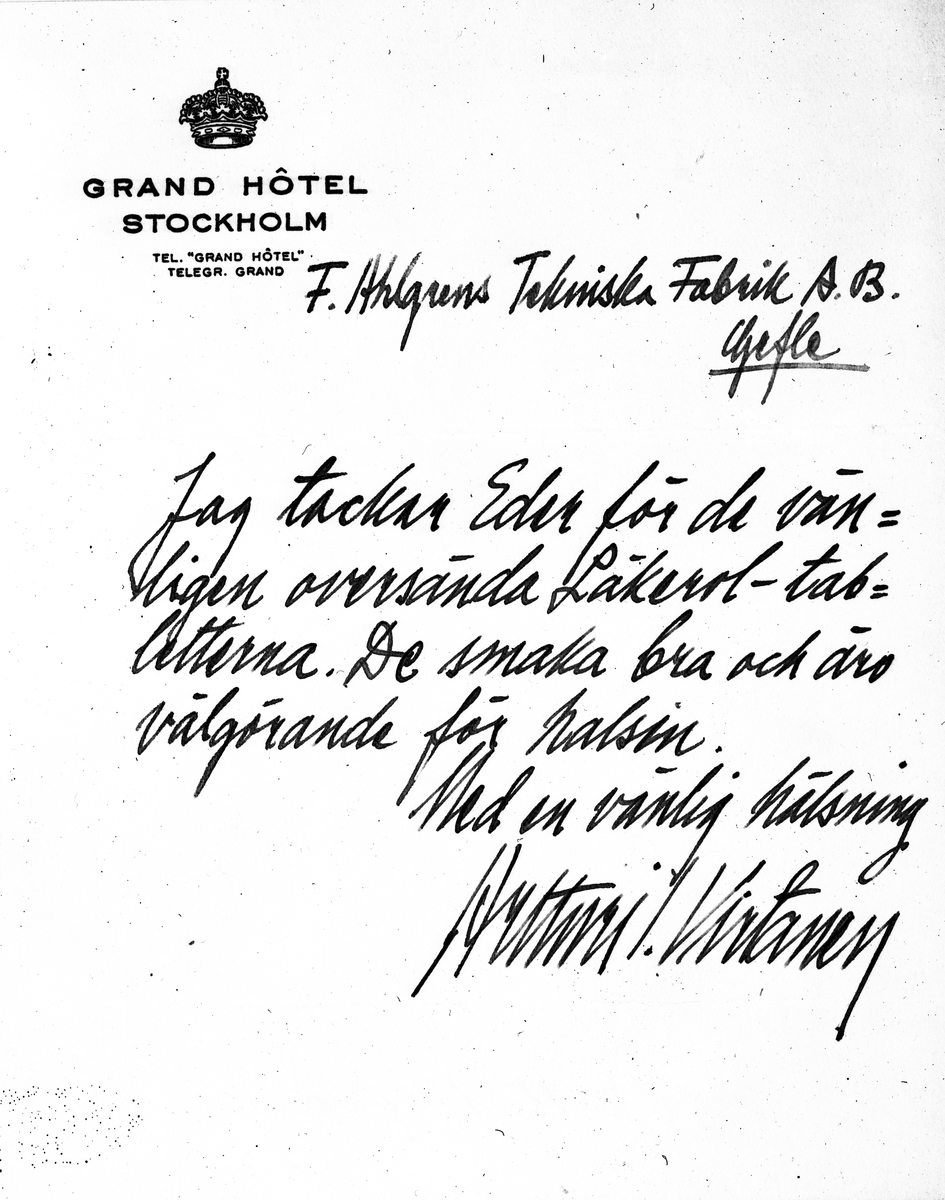 GRAND HÔTEL
STOCKHOLM
TEL. "GRAND HÔTEL"
TELEGR. GRAND
F. Ahlgrens Tekniska Fabrik A. B.
Gefle
Jag tackar Eder för de vän=
ligen oversända Läkerol-tab=
letterna. De smaka bra och äro
välgörande för halsen.
Med en vänlig hälsning
Artturi I. Virtanen